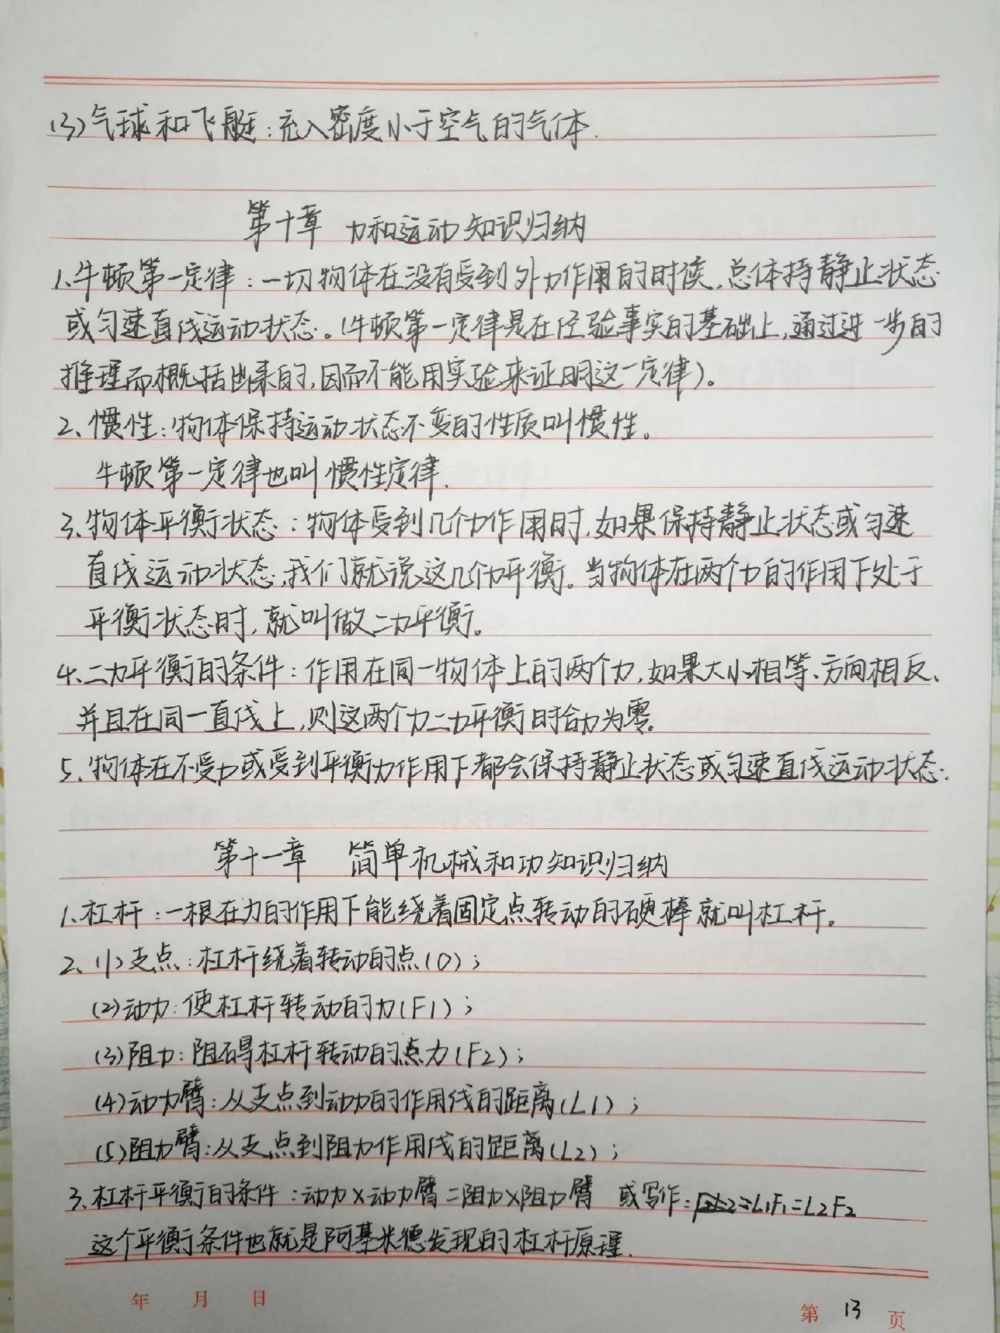 (3)气球和飞艇:充入密度小于空气的气体.
第十章 力和运动知识归纳
1.牛顿第一定律:一切物体在没有受到外力作用的时候,总体持静止状态
或匀速直线运动状态。(牛顿第一定律是在经验事实的基础上,通过进一步的
推理而概括出来的,因而不能用实验来证明这一定律)。
2、惯性:物体保持运动状态不变的性质叫惯性。
牛顿第一定律也叫惯性定律.
3.物体平衡状态:物体受到几个力作用时,如果保持静止状态或匀速
直线运动状态,我们就说这几个力平衡。当物体在两个力的作用下处于
平衡状态时,就叫做二力平衡。
4.二力平衡的条件:作用在同一物体上的两个力,如果大小相等、方向相反、
并且在同一直线上,则这两个力二力平衡时合力为零.
5.物体在不受力或受到平衡力作用下都会保持静止状态或匀速直线运动状态.
第十一章 简单机械和功知识归纳
1.杠杆:一根在力的作用下能绕着固定点转动的硬棒就叫杠杆。
2、(1)支点:杠杆绕着转动的点(O);
(2)动力:使杠杆转动的力(F1);
(3)阻力:阻碍杠杆转动的点力(F2);
(4)动力臂:从支点到动力的作用线的距离(L1);
(5)阻力臂:从支点到阻力作用线的距离(L2);
3.杠杆平衡的条件:动力×动力臂=阻力×阻力臂 或写作:=L1F1=L2F2
这个平衡条件也就是阿基米德发现的杠杆原理.
年 月 日
第 13 页